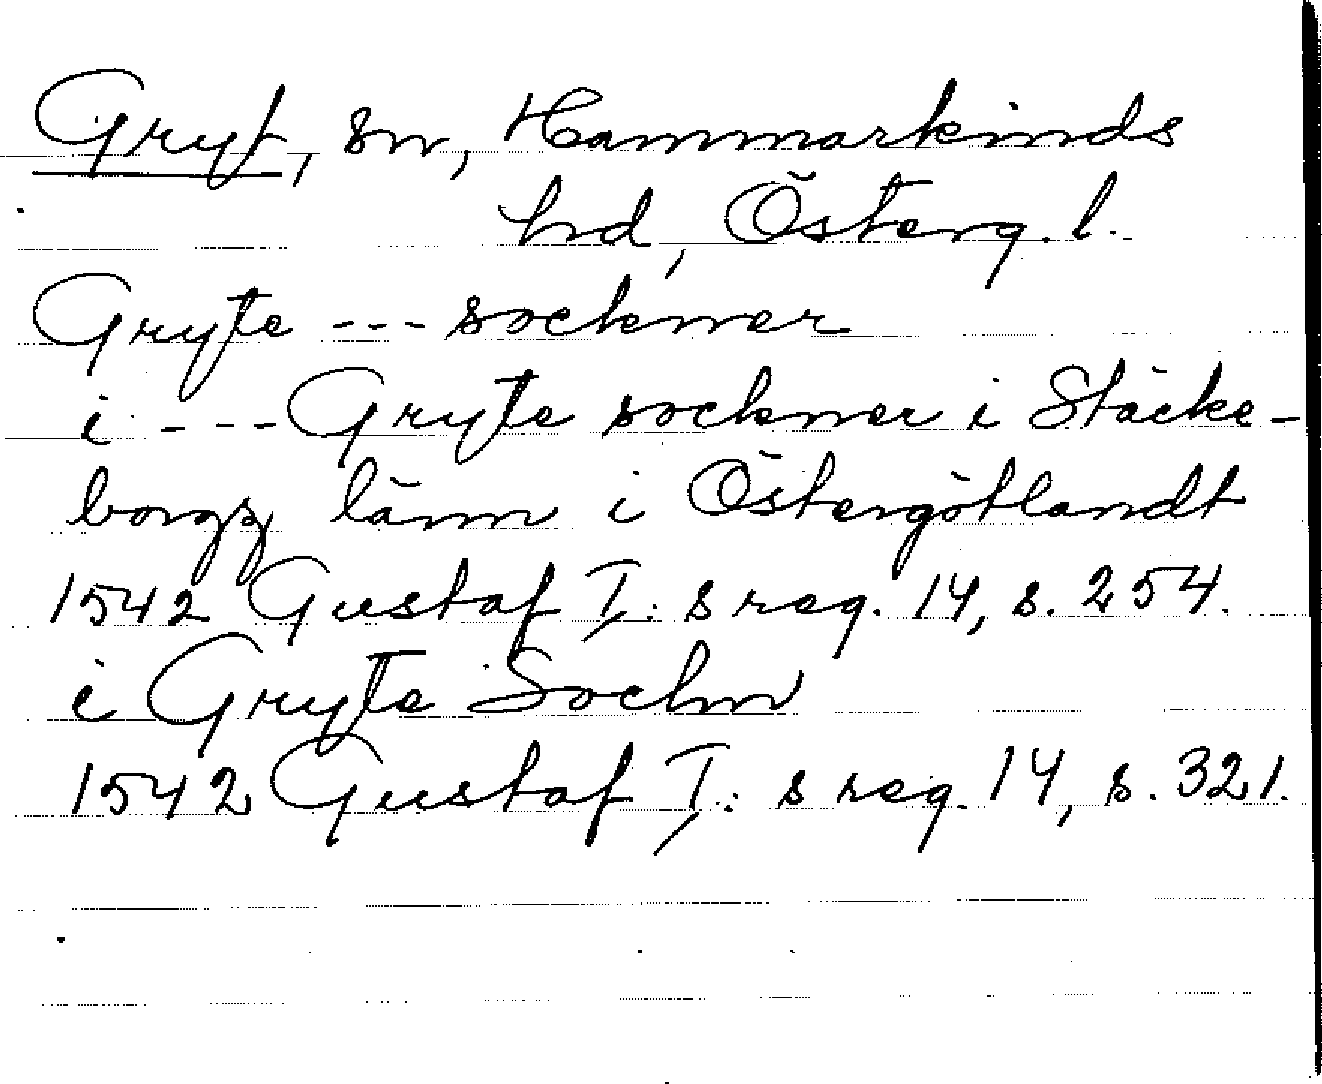 Gryt, sn, Hammarkinds
hd, Österg. l.
Gryte --- sockner
i --- Gryte sockner i Stäcke-
borgz länn i Östergötlandt
1542 Gustaf I: s reg. 14, s. 254.
i Gryte Sochn
1542 Gustaf I: s reg. 14, s. 321.